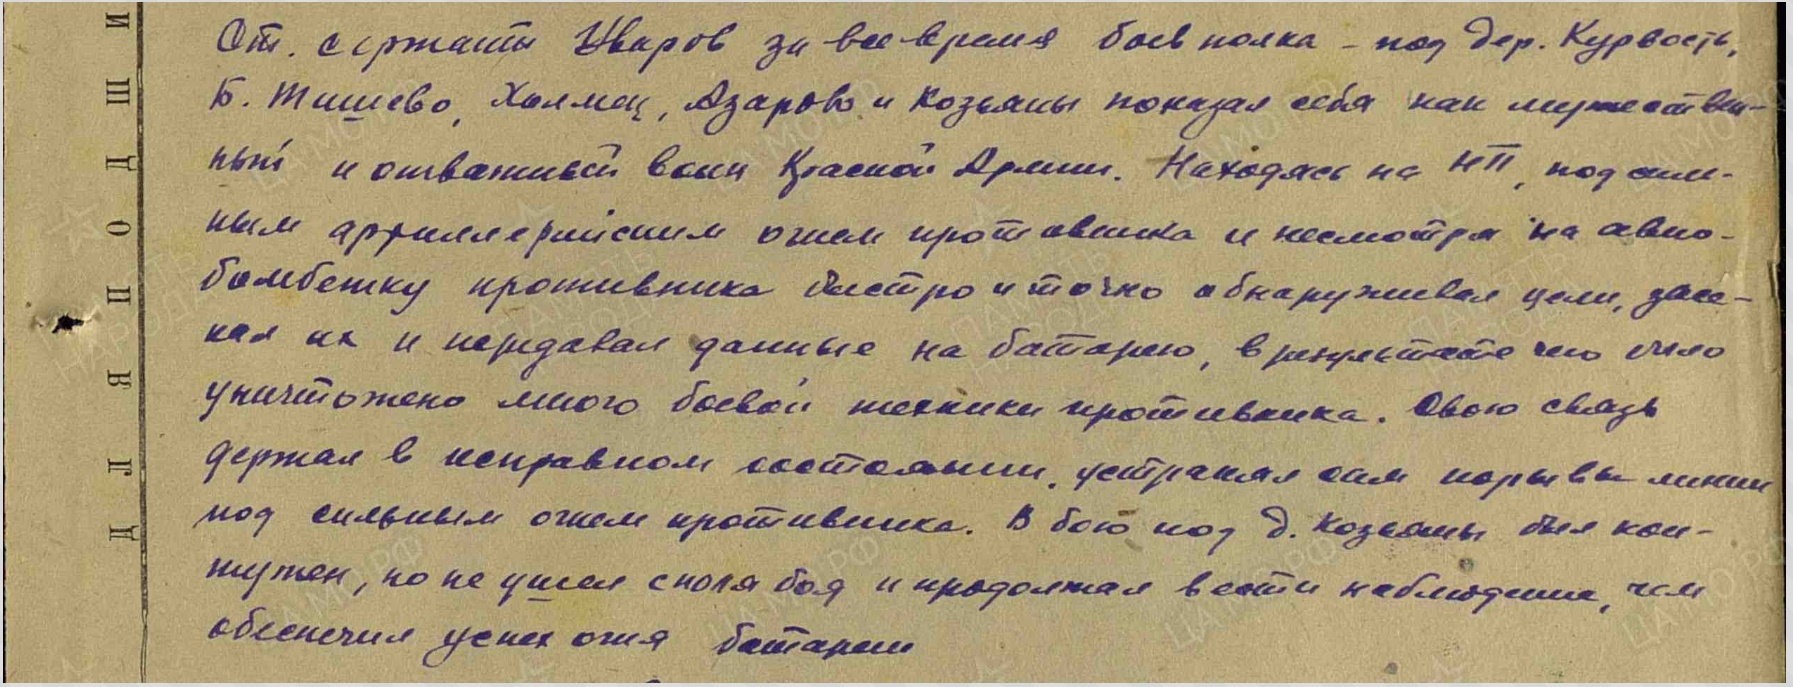 Ст. сержант Уваров за все время боев полка - под дер. Курвость,
Б. Тишево, Холмец, Азарово и Козьяны показал себя как мужествен-
ный и отважный воин Красной Армии. Находясь на НП, под силь-
ным артиллерийским огнем противника и несмотря на авио-
бомбежку противника быстро и точно обнаруживал цели, засе-
кал их и передавал данные на батарею, в результате чего было
уничтожено много боевой техники противника. Свою связь
держал в исправном состоянии, устранял сам порывы линии
под сильным огнем противника. В бою под д. Козьяны был кон-
тужен, но не ушел с поля боя и продолжал вести наблюдение, чем
обеспечил успех огня батареи